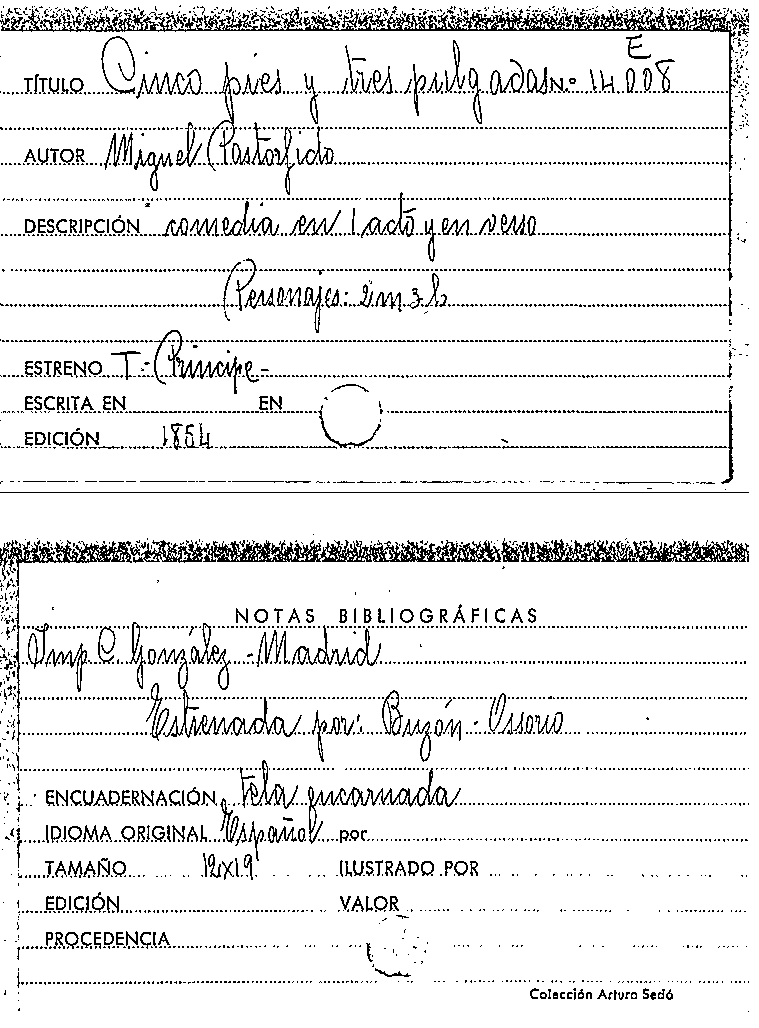 E
TÍTULO Cinco pies y tres pulgadas N.º 14008
AUTOR Miguel Pastorfido
DESCRIPCIÓN comedia en 1 acto y en verso
Personajes: 2 m 3 h
ESTRENO T. Príncipe -
ESCRITA EN EN
EDICIÓN 1854
NOTAS BIBLIOGRÁFICAS
Imp C. González - Madrid
Estrenada por: Buzón - Ossorio
ENCUADERNACIÓN tela encarnada
IDIOMA ORIGINAL Español por
TAMAÑO 12x19 ILUSTRADO POR
EDICIÓN VALOR
PROCEDENCIA
Colección Arturo Sedó